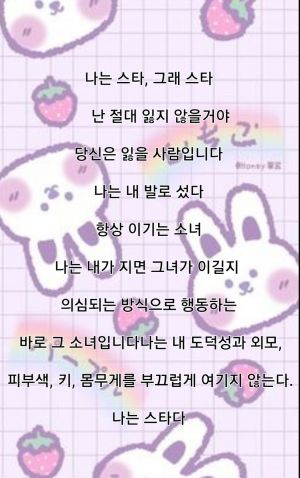 나는 스타, 그래 스타
난 절대 잃지 않을거야
당신은 잃을 사람입니다
나는 내 발로 섰다
항상 이기는 소녀
나는 내가 지면 그녀가 이길지
의심되는 방식으로 행동하는
바로 그 소녀입니다나는 내 도덕성과 외모,
피부색, 키, 몸무게를 부끄럽게 여기지 않는다.
나는 스타다